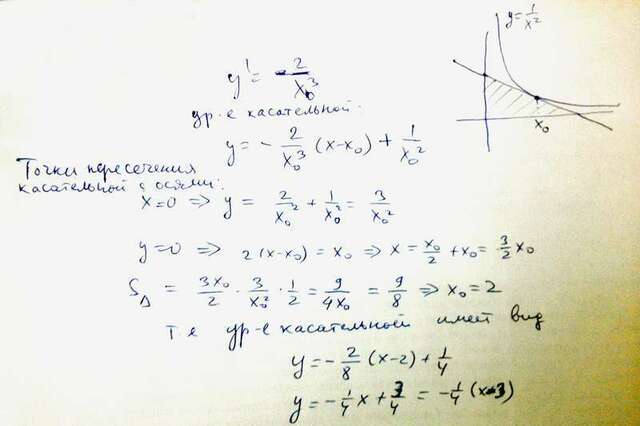 y = 1/x²
x₀
y' = -2/x₀³
ур-е касательной:
y = -2/x₀³ (x-x₀) + 1/x₀²
Точки пересечения
касательной с осями:
x=0 ⇒ y = 2/x₀² + 1/x₀² = 3/x₀²
y=0 ⇒ 2(x-x₀) = x₀ ⇒ x = x₀/2 + x₀ = 3/2 x₀
S△ = 3x₀/2 · 3/x₀² · 1/2 = 9/4x₀ = 9/8 ⇒ x₀ = 2
т.е ур-е касательной имеет вид
y = -2/8 (x-2) + 1/4
y = -1/4 x + 3/4 = -1/4 (x-3)